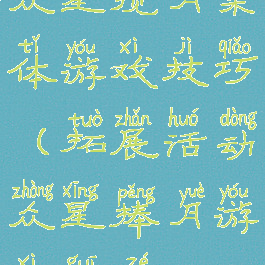 众星
tǐ yóu xì jì qiǎo
体游戏技巧
tuò zhǎn huó dòng
（拓展活动
zhòng xīng pěng yuè yóu
众星捧月游
xì guī zé